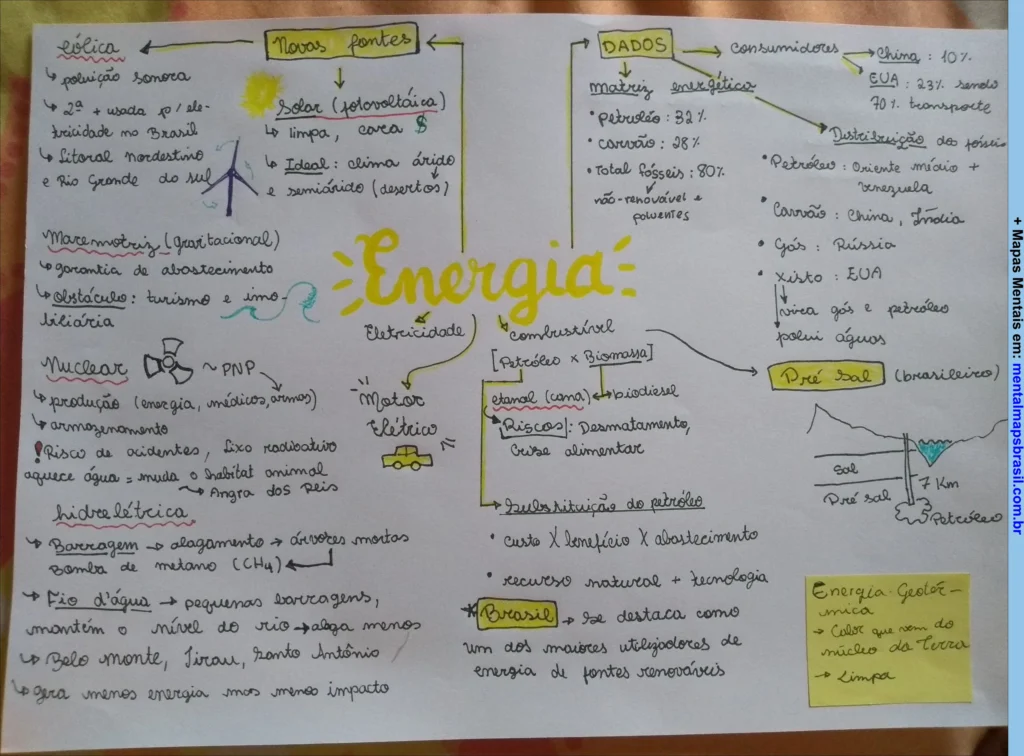 Novas fontes
Eólica
↳ poluição sonora
↳ 2ª + usada p/ ele-
tricidade no Brasil
↳ Litoral nordestino
e Rio Grande do sul
Solar (fotovoltáica)
↳ limpa, cara $
↳ Ideal: clima árido
e semiárido (desertos)
Maremotriz (gravitacional)
↳ garantia de abastecimento
↳ Obstáculo: turismo e imo-
biliária
Nuclear ~ PNP
↳ produção (energia, médicos, armas)
↳ armazenamento
! Risco de acidentes, lixo radioativo
aquece água = muda o habitat animal
→ Angra dos Reis
hidrelétrica
↳ Barragem → alagamento → árvores mortas
Bomba de metano (CH4)
↳ Fio d'água → pequenas barragens,
mantém o nível do rio → alaga menos
↳ Belo Monte, Jirau, Santo Antônio
↳ gera menos energia mas menos impacto
DADOS
consumidores
China: 10%
EUA: 23% sendo
70% transporte
Matriz energética
• Petróleo: 32%
• carvão: 28%
• Total fósseis: 80%
não-renovável e
poluentes
Distribuição dos fósseis
• Petróleo: Oriente médio +
Venezuela
• Carvão: China, Índia
• Gás: Rússia
• Xisto: EUA
vira gás e petróleo
polui águas
Energia
Eletricidade
Motor
Elétrico
combustível
[Petróleo x Biomassa]
etanol (cana) biodiesel
Riscos: Desmatamento,
Crise alimentar
Substituição do petróleo
• custo X benefício X abastecimento
• recurso natural + tecnologia
* Brasil → Se destaca como
um dos maiores utilizadores de
energia de fontes renováveis
Pré Sal (brasileiro)
Sal
Pré sal
7 Km
Petróleo
Energia Geotér-
mica
→ Calor que vem do
núcleo da Terra
→ Limpa
+ Mapas Mentais em: mentalmapsbrasil.com.br